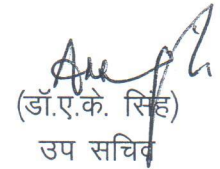 (डॉ.ए.के. सिंह)
उप सचिव